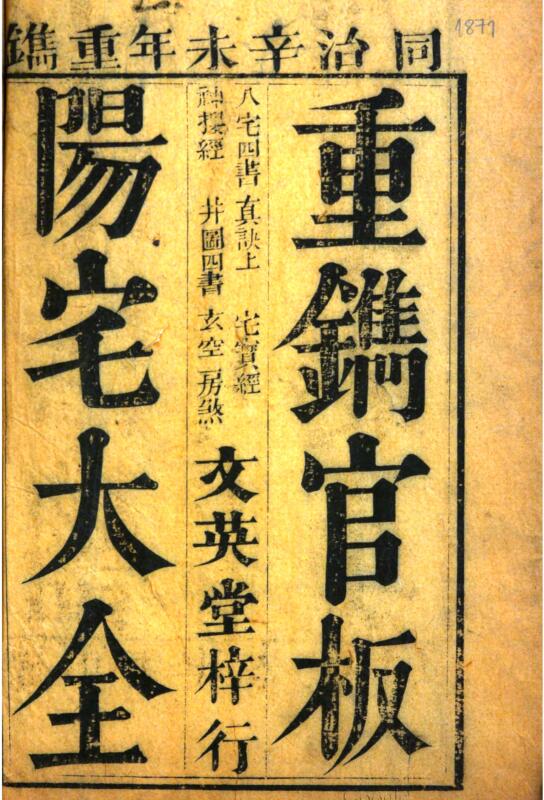 1871
同治辛未年重鐫
重鐫官板
八宅四書 真訣上 宅寶經
神搜經 井圖四書 玄空房煞
文英堂梓行
陽宅大全